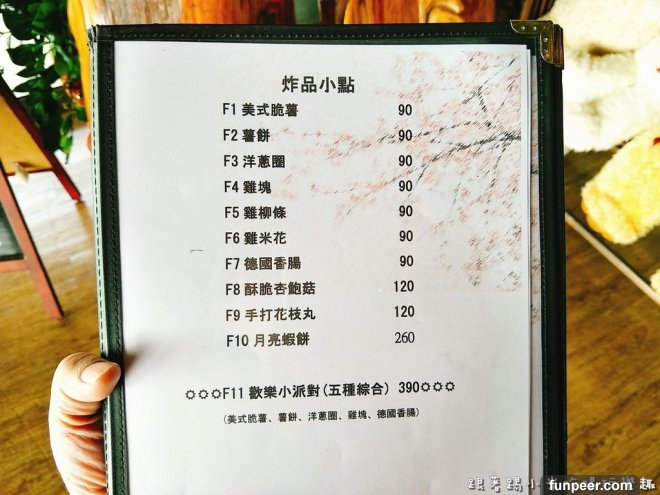 炸品小點
F1 美式脆薯 90
F2 薯餅 90
F3 洋蔥圈 90
F4 雞塊 90
F5 雞柳條 90
F6 雞米花 90
F7 德國香腸 90
F8 酥脆杏鮑菇 120
F9 手打花枝丸 120
F10 月亮蝦餅 260
✡✡✡F11 歡樂小派對(五種綜合) 390✡✡✡
(美式脆薯、薯餅、洋蔥圈、雞塊、德國香腸)
跟著踢小
趣
funpeer.com